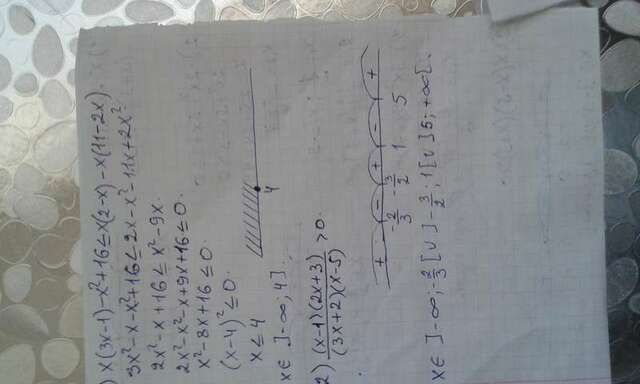 ) x(3x-1)-x²+16≤x(2-x)-x(11-2x).
3x²-x-x²+16≤2x-x²-11x+2x²
2x²-x+16≤x²-9x.
2x²-x²-x+9x+16≤0.
x²-8x+16≤0.
(x-4)²≤0.
x≤4
4
x∈]-∞;4].
2) (x-1)(2x+3)/(3x+2)(x-5)>0.
+ - + - +
-2/3 -3/2 1 5
x∈]-∞;-2/3[∪]-3/2;1[∪]5;+∞[.